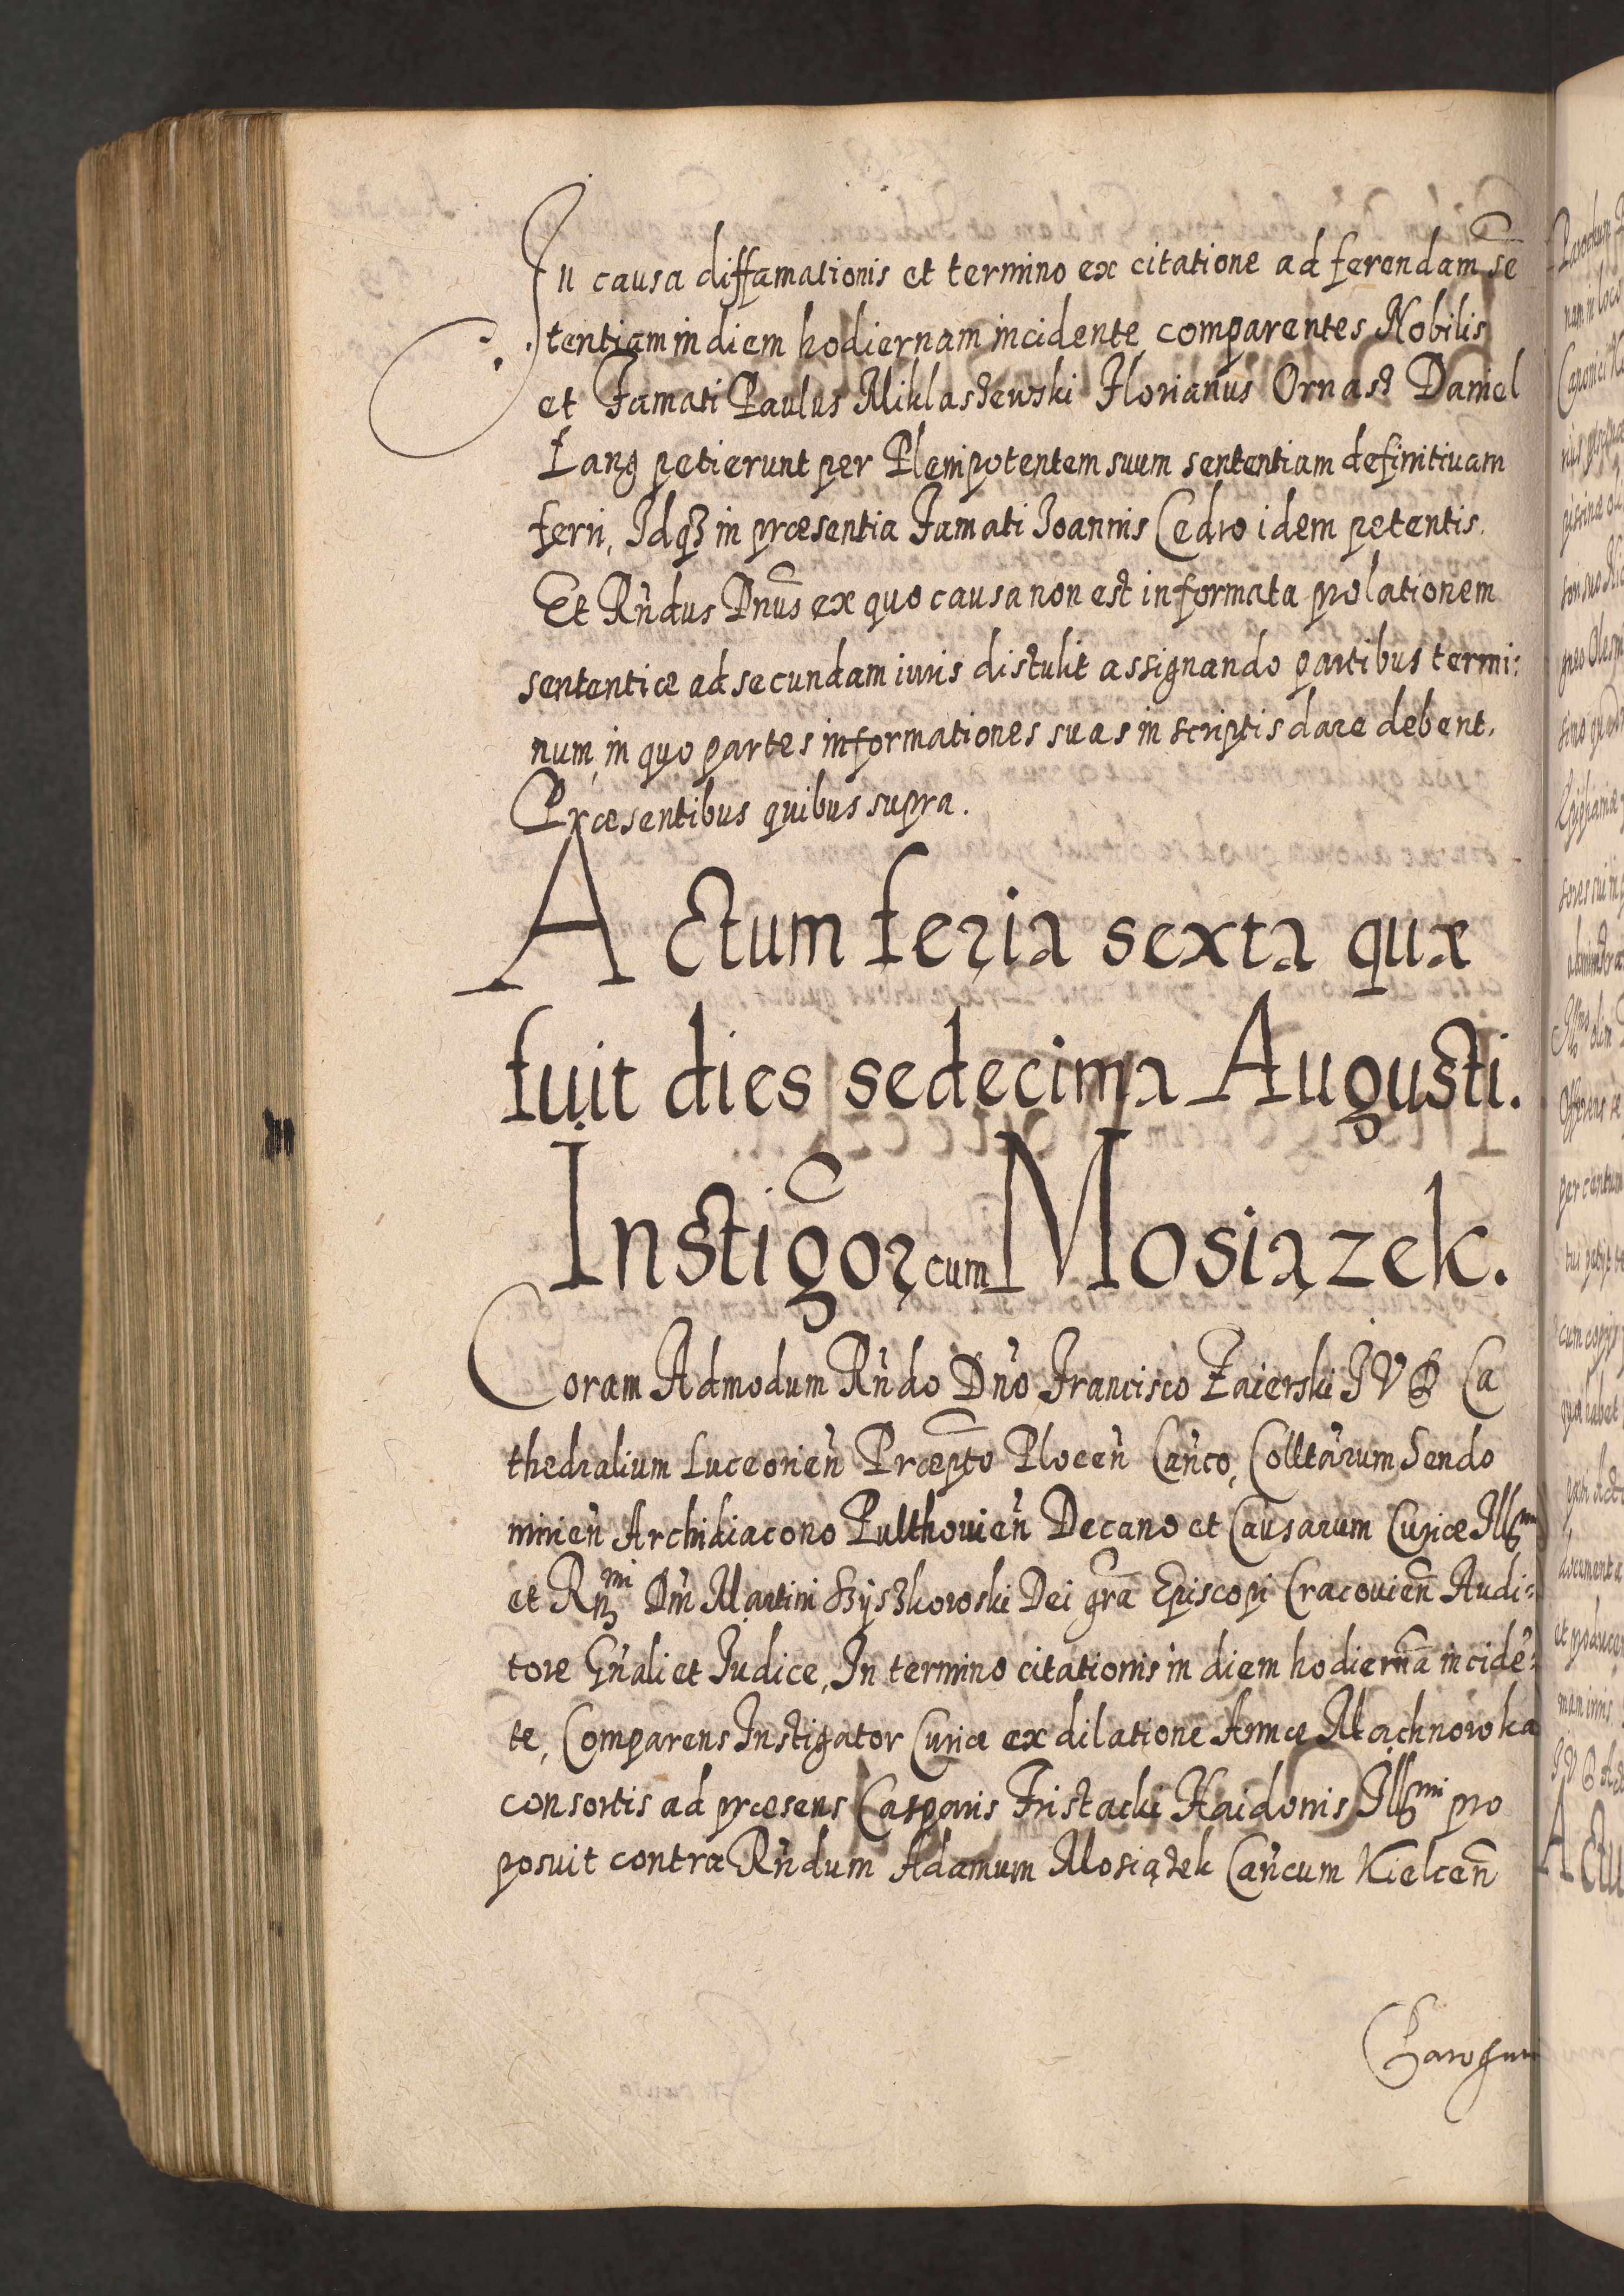 In causa diffamationis et termino ex citatione ad ferendam sē
tentiam in diem hodiernam incidente comparentes Nobilis
et Famati Paulus Miklaszewski Florianus Ornast Daniel
Lang petierunt per Plenipotentem suum sententiam definitivam
ferri, Idqꝫ in præsentia Famati Joannis Cedro idem petentis.
Et Rńdus Dnūs ex quo causa non est informata prolationem
sententiæ ad secundam iuris distulit assignando partibus termi:
num, in quo partes informationes suas in scriptis dare debent.
Præsentibus quibus supra.
Actum feria sexta quæ
fuit dies sedecima Augusti.
Instigōr cum Mosiązek.
Coram Admodum Rńdo Dńo Francisco Zaierski JVD Ca
thedralium Luceorień Præpto Ploceń Cańco, Colltarum Sendo
mirień Archidiacono Pulthovień Decano et Causarum Curiæ Illmi
et Rmi Dńi Martini Szyszkowski Dei grā Episcopi Cracovień Audi:
tore Gńali et Judice, In termino citationis in diem hodiernā incidē:
te, Comparens Instigator Curiæ ex dilatione Annæ Machnowka
consortis ad præsens Casparis Fristacki Haidonis Illmi pro
posuit contra Rńdum Adamum Mosiązek Cańcum Kielceń